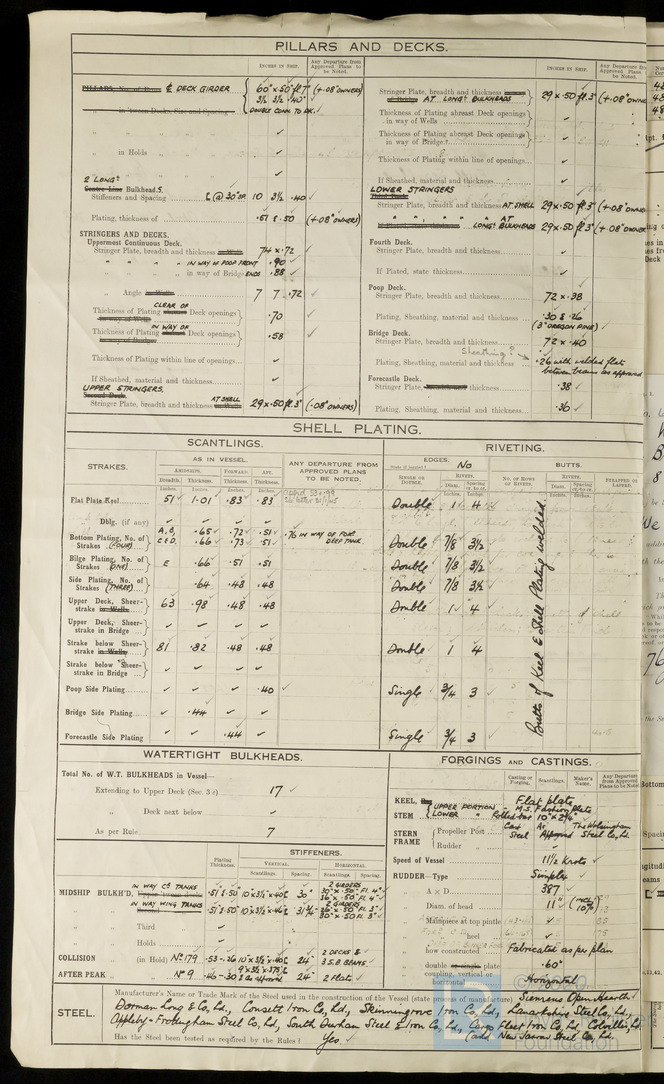 PILLARS AND DECKS.
INCHES IN SHIP.
Any Departure from Approved Plans to be Noted.
℄ DECK GIRDER
60" × ·50 fl 7" (+·08" OWNERS)
3½ 3½ ·40"
DOUBLE CONN. TO DK.
in Holds
2 LONGL
Bulkheads.
Stiffeners and Spacing ℄ @ 30" SP. 10 3½ ·40
Plating, thickness of ·51 & ·50 (+·08" OWNERS)
STRINGERS AND DECKS.
Uppermost Continuous Deck.
Stringer Plate, breadth and thickness 74 × ·72
" " " IN WAY OF POOP FRONT ·90
" " in way of Bridge ENDS ·88
" Angle 7 7 ·72
CLEAR OF
Thickness of Plating Deck openings ·70
IN WAY OF
Thickness of Plating Deck openings ·58
Thickness of Plating within line of openings
If Sheathed, material and thickness
UPPER STRINGERS.
Stringer Plate, breadth and thickness AT SHELL 29 × ·50 fl. 3" (·08" OWNERS)
INCHES IN SHIP.
Any Departure from Approved Plans to be Noted.
Stringer Plate, breadth and thickness AT LONGL BULKHEADS 29 × ·50 fl. 3" (+·08" OWNE
Thickness of Plating abreast Deck openings in way of Wells
Thickness of Plating abreast Deck openings in way of Bridge
Thickness of Plating within line of openings
If Sheathed, material and thickness
LOWER STRINGERS
Stringer Plate, breadth and thickness AT SHELL 29 × ·50 fl. 3" (+·08" OWNERS
" " " " AT LONGL BULKHEADS 29 × ·50 fl. 3" (+·08" OWNERS
Fourth Deck.
Stringer Plate, breadth and thickness
If Plated, state thickness
Poop Deck.
Stringer Plate, breadth and thickness 72 × ·38
Plating, Sheathing, material and thickness ·30 & ·26
(3" OREGON PINE)
Bridge Deck.
Stringer Plate, breadth and thickness 72 × ·40
Sheathing?
Plating, Sheathing, material and thickness ·26 with welded flat between beams as approved
Forecastle Deck.
Stringer Plate ·38
Plating, Sheathing, material and thickness ·36
SHELL PLATING.
SCANTLINGS.
RIVETING.
STRAKES.
AS IN VESSEL.
ANY DEPARTURE FROM APPROVED PLANS TO BE NOTED.
AMIDSHIPS. FORWARD. AFT.
Breadth Thickness. Thickness. Thickness.
EDGES. No
BUTTS.
SINGLE OR DOUBLE.
RIVETS.
Diam. Spacing cr. to cr.
NO. OF ROWS OF RIVETS.
RIVETS.
Diam. Spacing cr. to cr.
STRAPPED OR LAPPED.
Flat Plate Keel 51 1·01 ·83 ·83 Double 1 4
Dblg. (if any)
Bottom Plating, No. of Strakes (FOUR) A, B, ·65 ·72 ·51 ·76 IN WAY OF FORD DEEP TANK
C & D. ·66 ·73 ·51 Double 7/8 3½
Bilge Plating, No. of Strakes (ONE) E ·66 ·51 ·51 Double 7/8 3½
Side Plating, No. of Strakes (THREE) ·64 ·48 ·48 Double 7/8 3½
Upper Deck, Sheer-strake 63 ·98 ·48 ·48 Double 1 4
Upper Deck, Sheer-strake in Bridge
Strake below Sheer-strake 81 ·82 ·48 ·48 Double 1 4
Strake below Sheer-strake in Bridge
Poop Side Plating ·40 Single 3/4 3
Bridge Side Plating ·44
Forecastle Side Plating ·44 Single 3/4 3
Butts of Keel & Shell Plating welded.
WATERTIGHT BULKHEADS.
Total No. of W.T. BULKHEADS in Vessel—
Extending to Upper Deck (Sec. 3 c) 17
" Deck next below
As per Rule 7
STIFFENERS.
Plating Thickness.
VERTICAL. HORIZONTAL.
Scantlings. Spacing. Scantlings. Spacing.
MIDSHIP BULKH'D, IN WAY CR TANKS ·51 & ·50 10 × 3½ × ·40 30" 2 GIRDERS
IN WAY WING TANKS ·51 & ·50 2 GIRDERS
" Third
" Holds
COLLISION (in Hold) No 179 24" 2 DECKS &
AFTER PEAK No 9 24" 2 Flats
FORGINGS AND CASTINGS.
Casting or Forging.
Scantlings.
Maker's Name.
Any Departure from Approved Plans to be Noted
KEEL, Flat plate
STEM UPPER PORTION - M.S. Fashion Plate
LOWER " Rolled bar 10" × 2¼"
STERN FRAME Propeller Post Cast Steel As Approved The Wolsingham Steel Co, Ld.
Rudder "
Speed of Vessel 11½ Knots
RUDDER—Type Simplex
" A × D 387
" Diam. of head 11"
" Mainpiece at top pintle
" " heel
" how constructed Fabricated as per plan
" double plate ·60"
" coupling, vertical or horizontal Horizontal
STEEL.
Manufacturer's Name or Trade Mark of the Steel used in the construction of the Vessel (state process of manufacture) Siemens Open Hearth
Dorman Long & Co, Ld., Consett Iron Co, Ld., Skinningrove Iron Co, Ld., Lanarkshire Steel Co, Ld.,
Appleby-Frodingham Steel Co, Ld., South Durham Steel & Iron Co, Ld., Cargo Fleet Iron Co, Ld., Colvilles, Ld.
(and New Jarrow Steel Co, Ld.
Has the Steel been tested as required by the Rules? Yes.
Foundation